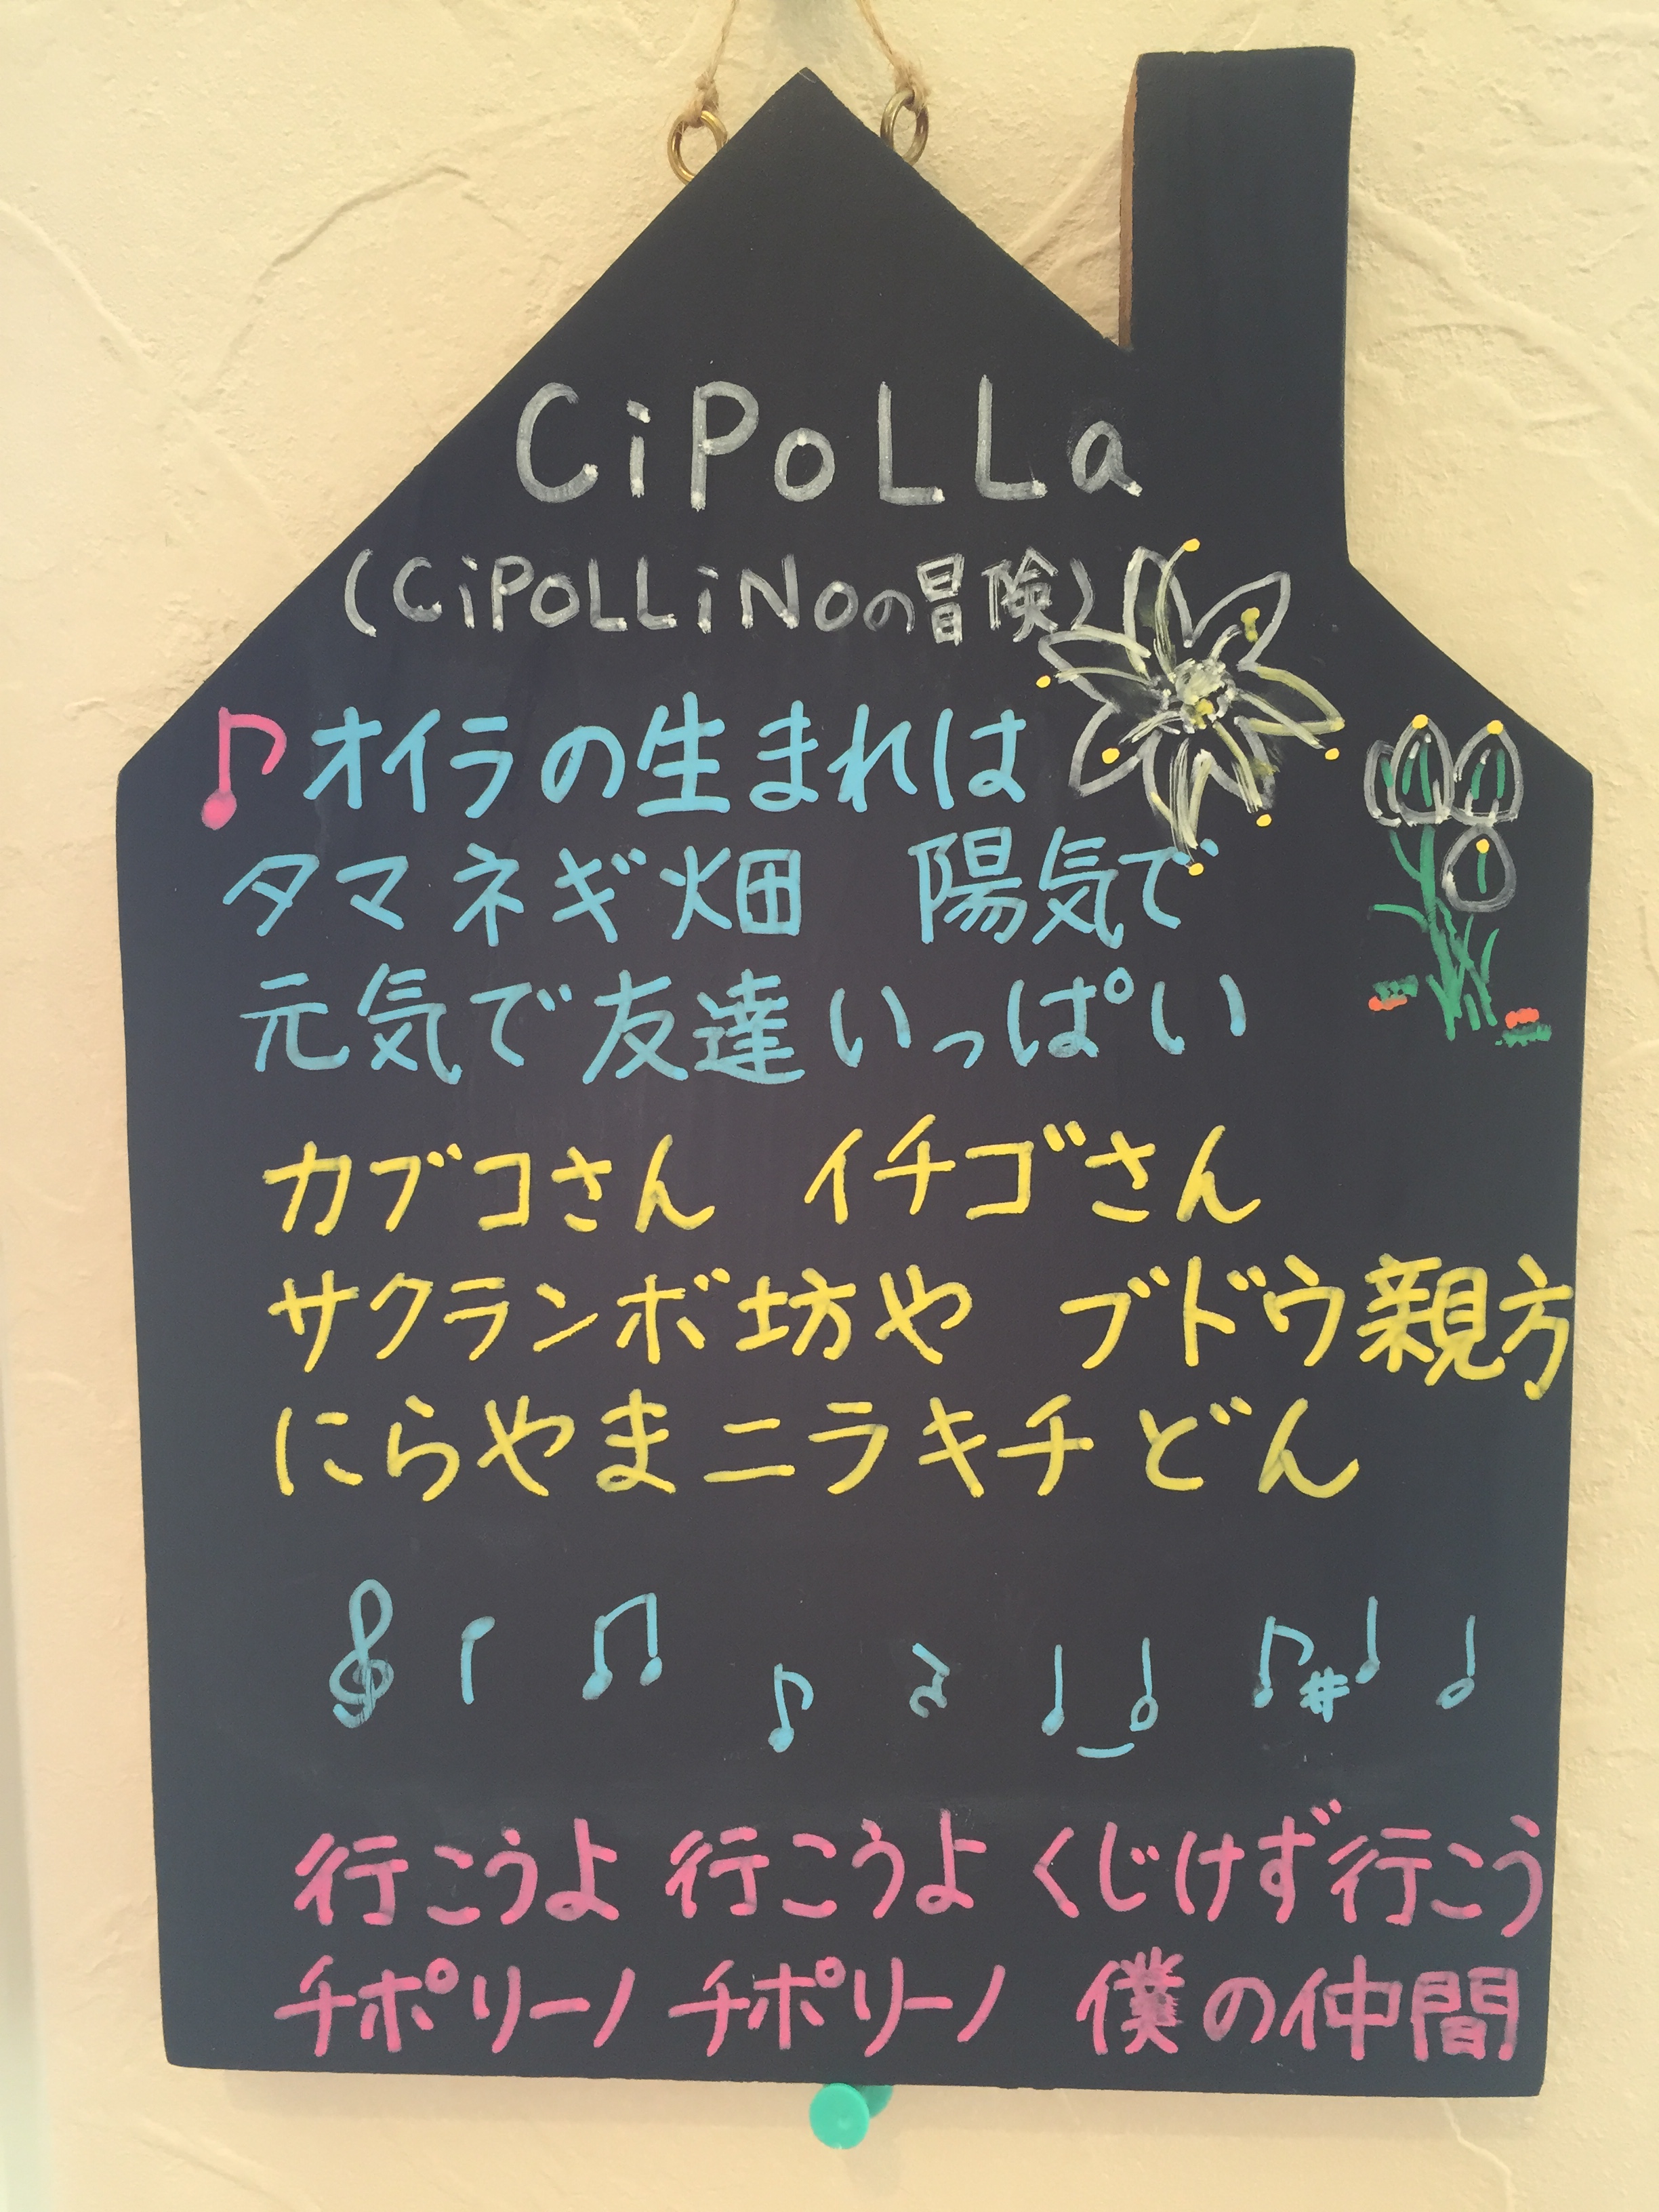 CiPoLLa
(CiPOLLiNoの冒険)
♪オイラの生まれは
タマネギ畑　陽気で
元気で友達いっぱい
カブコさん　イチゴさん
サクランボ坊や　ブドウ親方
にらやまニラキチどん
行こうよ 行こうよ くじけず行こう
チポリーノ チポリーノ 僕の仲間